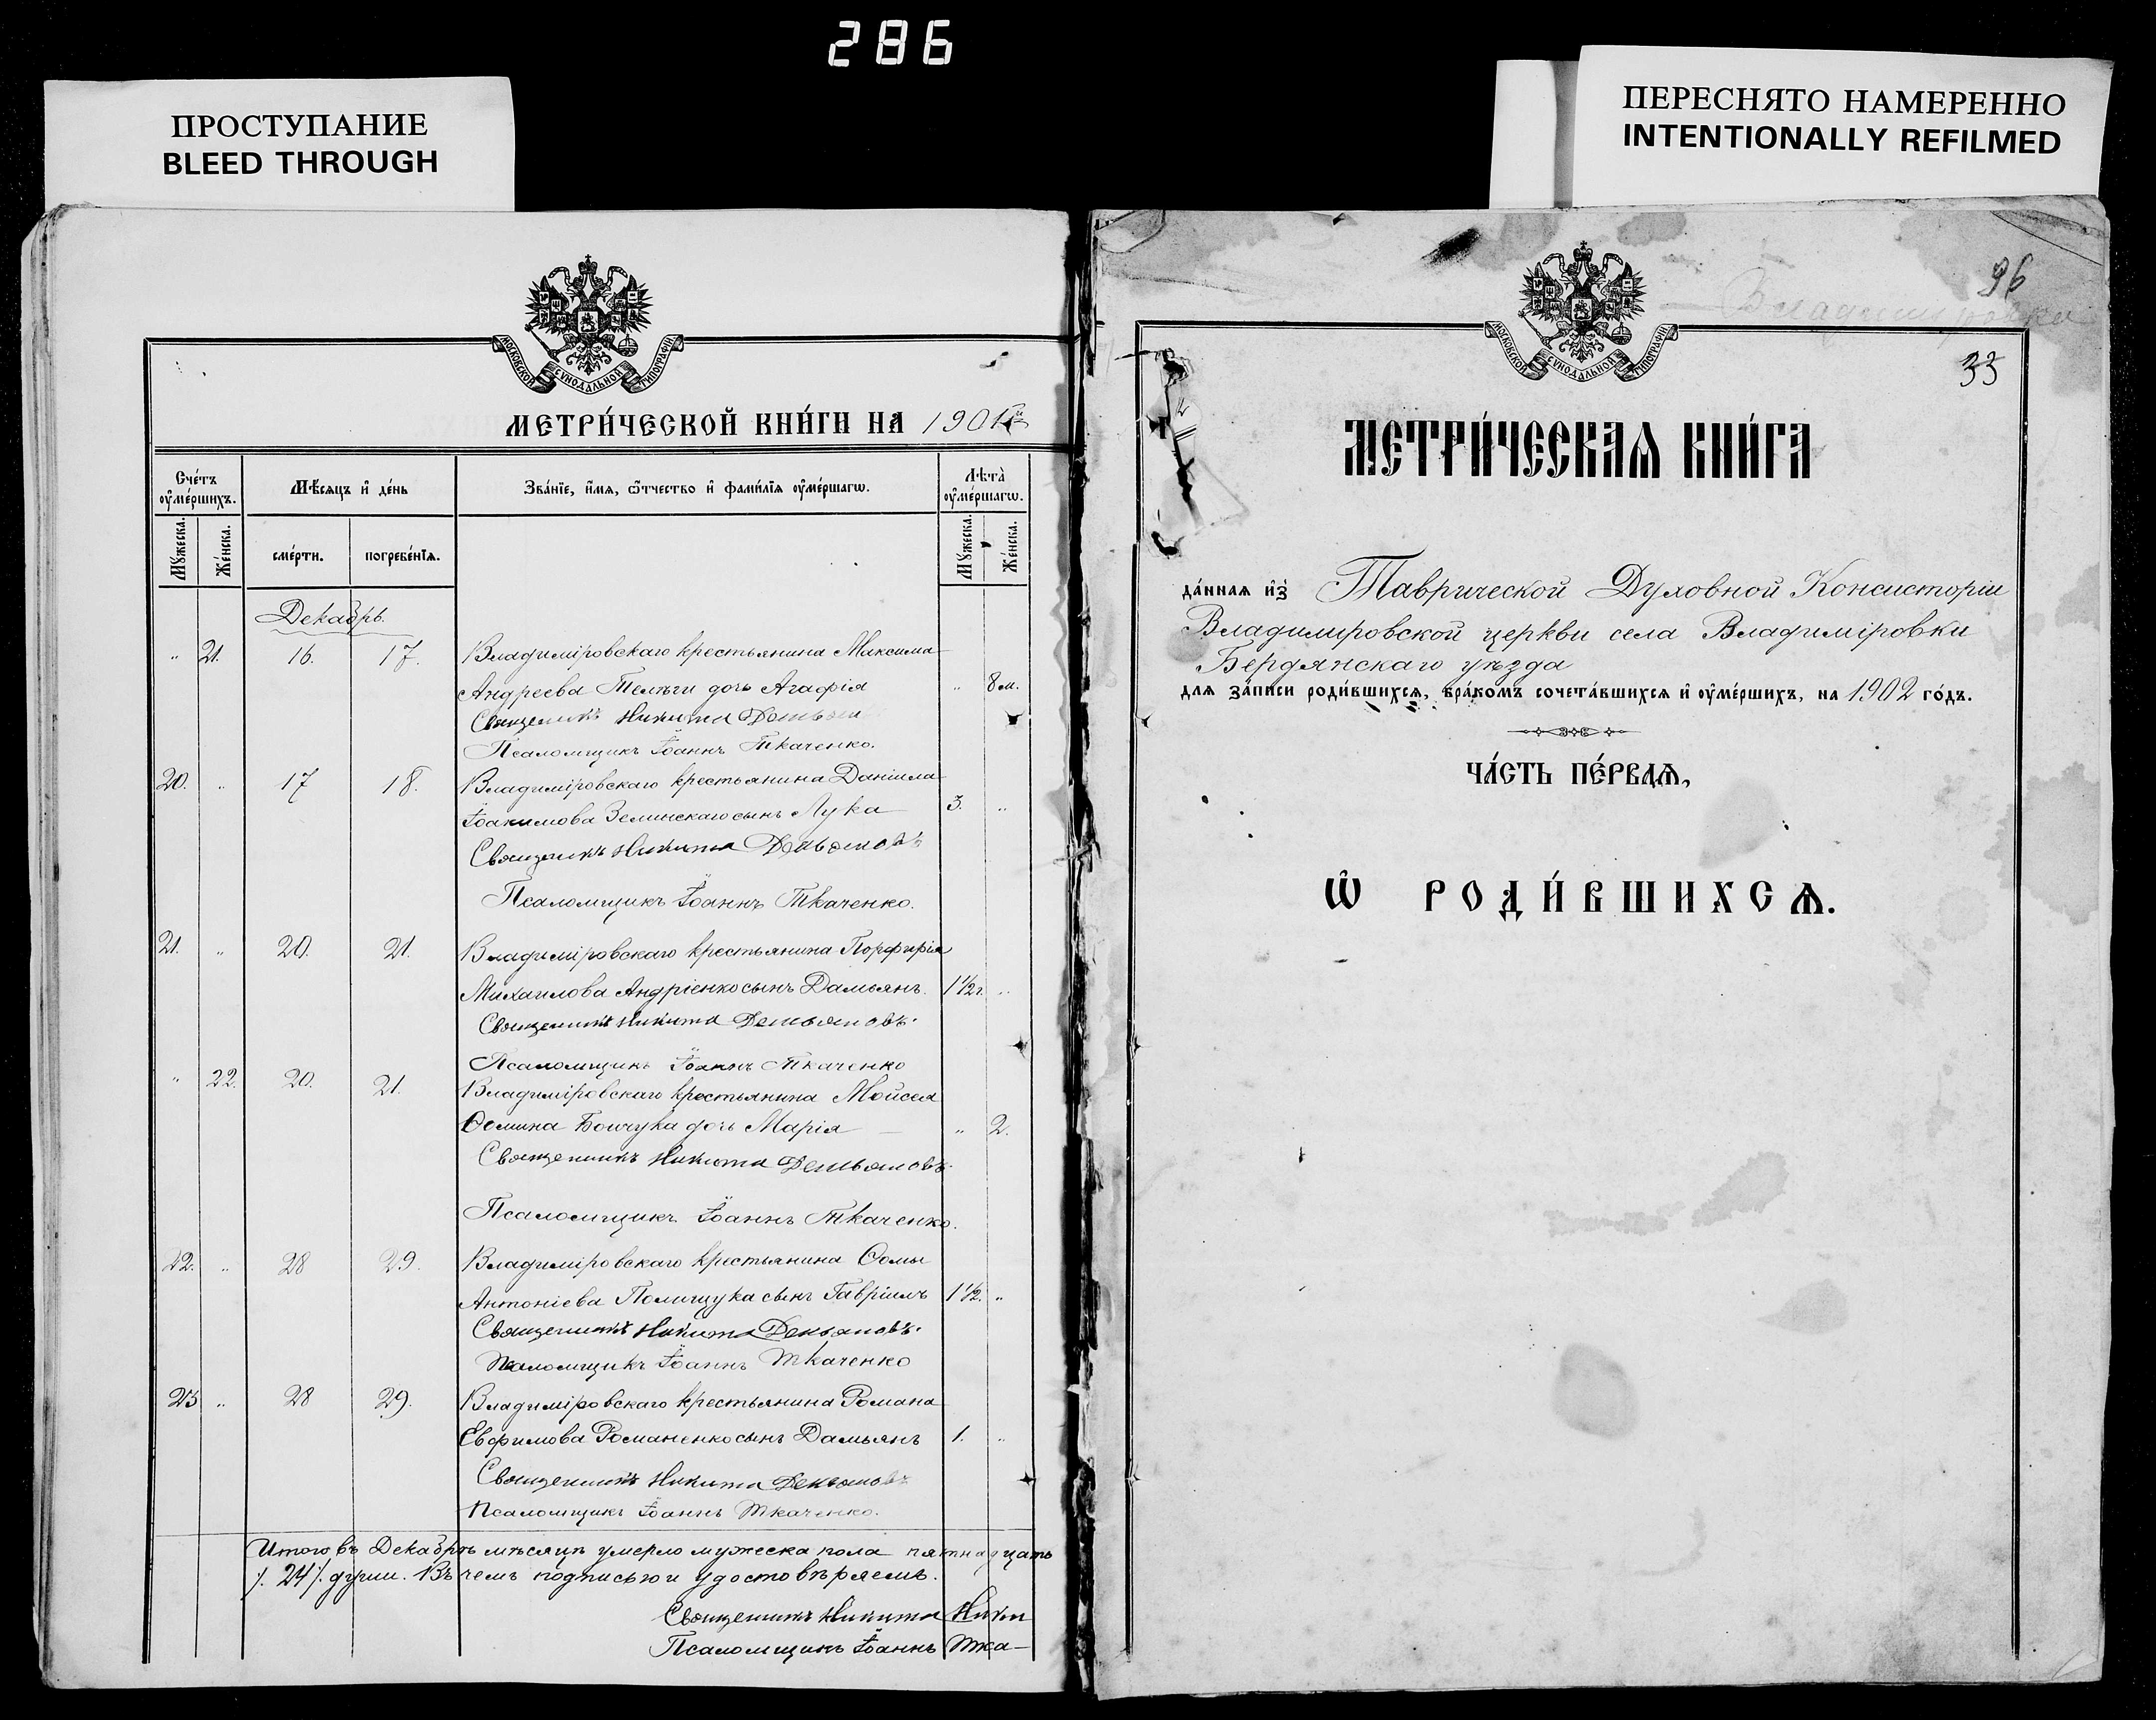 286
ПРОСТУПАНИЕ
BLEED THROUGH
ПЕРЕСНЯТО НАМЕРЕННО
INTENTIONALLY REFILMED
МОСКОВСКОЙ СѴНОДАЛЬНОЙ ТИПОГРАФІИ
МЕТРИ́ЧЕСКОЙ КНИ́ГИ НА 1901
Сче́тъ ᲂу҆ме́ршихъ.
Мѣ́сяцъ и҆ де́нь
Зва́нїе, и҆́мя, ѻ҆́тчество и҆ фами́лїя ᲂу҆ме́ршагѡ.
Лѣта̀ ᲂу҆ме́ршагѡ.
Мꙋ́жеска.
Же́нска.
сме́рти.
погребе́нїя.
Мꙋ́жеска.
Же́нска.
Декабрь.
" 21. 16. 17. Владиміровскаго крестьянина Максима
Андреева Телѣги дочь Агафія " 8 м.
Священникъ Никита Демьянов
Псаломщикъ Іоаннъ Ткаченко.
20. " 17 18. Владиміровскаго крестьянина Даніила
Іоакимова Зелинскаго сынъ Лука 3. "
Священникъ Никита Демьяновъ
Псаломщикъ Іоаннъ Ткаченко.
21. " 20. 21. Владиміровскаго крестьянина Порфирія
Михаилова Андріенко сынъ Дамьянъ. 1½ г. "
Священникъ Никита Демьяновъ.
Псаломщикъ Іоаннъ Ткаченко
" 22. 20. 21. Владиміровскаго крестьянина Мойсея
Ѳомина Бойчука дочь Марія " 2.
Священникъ Никита Демьяновъ.
Псаломщикъ Іоаннъ Ткаченко.
22. " 28 29. Владиміровскаго крестьянина Ѳомы
Антоніева Полищука сынъ Гавріилъ 1½. "
Священникъ Никита Демьяновъ.
Псаломщикъ Іоаннъ Ткаченко
23 " 28 29. Владиміровскаго крестьянина Романа
Евфимова Романенко сынъ Дамьянъ 1. "
Священникъ Никита Демьяновъ
Псаломщикъ Іоаннъ Ткаченко.
Итого въ Декабрѣ мѣсяцѣ умерло мужеска пола пятнадцать
/. 24 /. души. Въ чемъ подписью и удостовѣряемъ.
Священникъ Никита
Псаломщикъ Іоаннъ Тка—
Владимировка
96
33
МОСКОВСКОЙ СѴНОДАЛЬНОЙ ТИПОГРАФІИ
МЕТРИ́ЧЕСКАЯ КНИ́ГА
да́нная и҆з̾ Таврической Духовной Консисторіи
Владимировской церкви села Владиміровки
Бердянскаго уѣзда
для за́писи роди́вшихсѧ, бра́комъ сочета́вшихся и҆ ᲂу҆ме́ршихъ, на 1902 го́дъ.
ЧА́СТЬ ПЕ́РВАЯ,
Ѽ РОДИ́ВШИХСЯ.